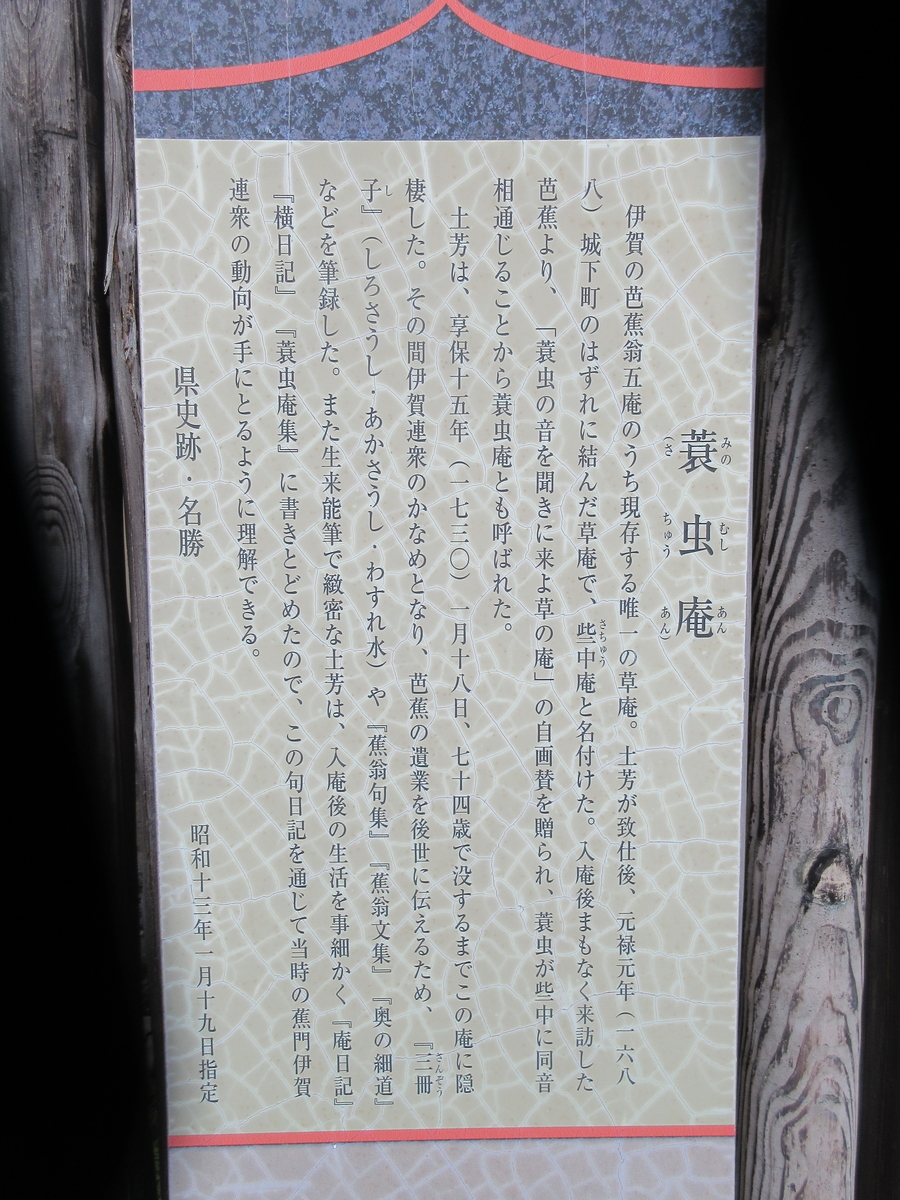 蓑虫庵
みの むし あん
(さ ちゅう あん)
伊賀の芭蕉翁五庵のうち現存する唯一の草庵。土芳が致仕後、元禄元年(一六八
八)城下町のはずれに結んだ草庵で、些中庵と名付けた。入庵後まもなく来訪した
さちゅう
芭蕉より、「蓑虫の音を聞きに来よ草の庵」の自画賛を贈られ、蓑虫が些中に同音
相通じることから蓑虫庵とも呼ばれた。
土芳は、享保十五年(一七三〇)一月十八日、七十四歳で没するまでこの庵に隠
棲した。その間伊賀連衆のかなめとなり、芭蕉の遺業を後世に伝えるため、『三冊
さんぞう
子』(しろさうし・あかさうし・わすれ水)や『蕉翁句集』『蕉翁文集』『奥の細道』
し
などを筆録した。また生来能筆で緻密な土芳は、入庵後の生活を事細かく『庵日記』
『横日記』『蓑虫庵集』に書きとどめたので、この句日記を通じて当時の蕉門伊賀
連衆の動向が手にとるように理解できる。
県史跡・名勝
昭和十三年一月十九日指定